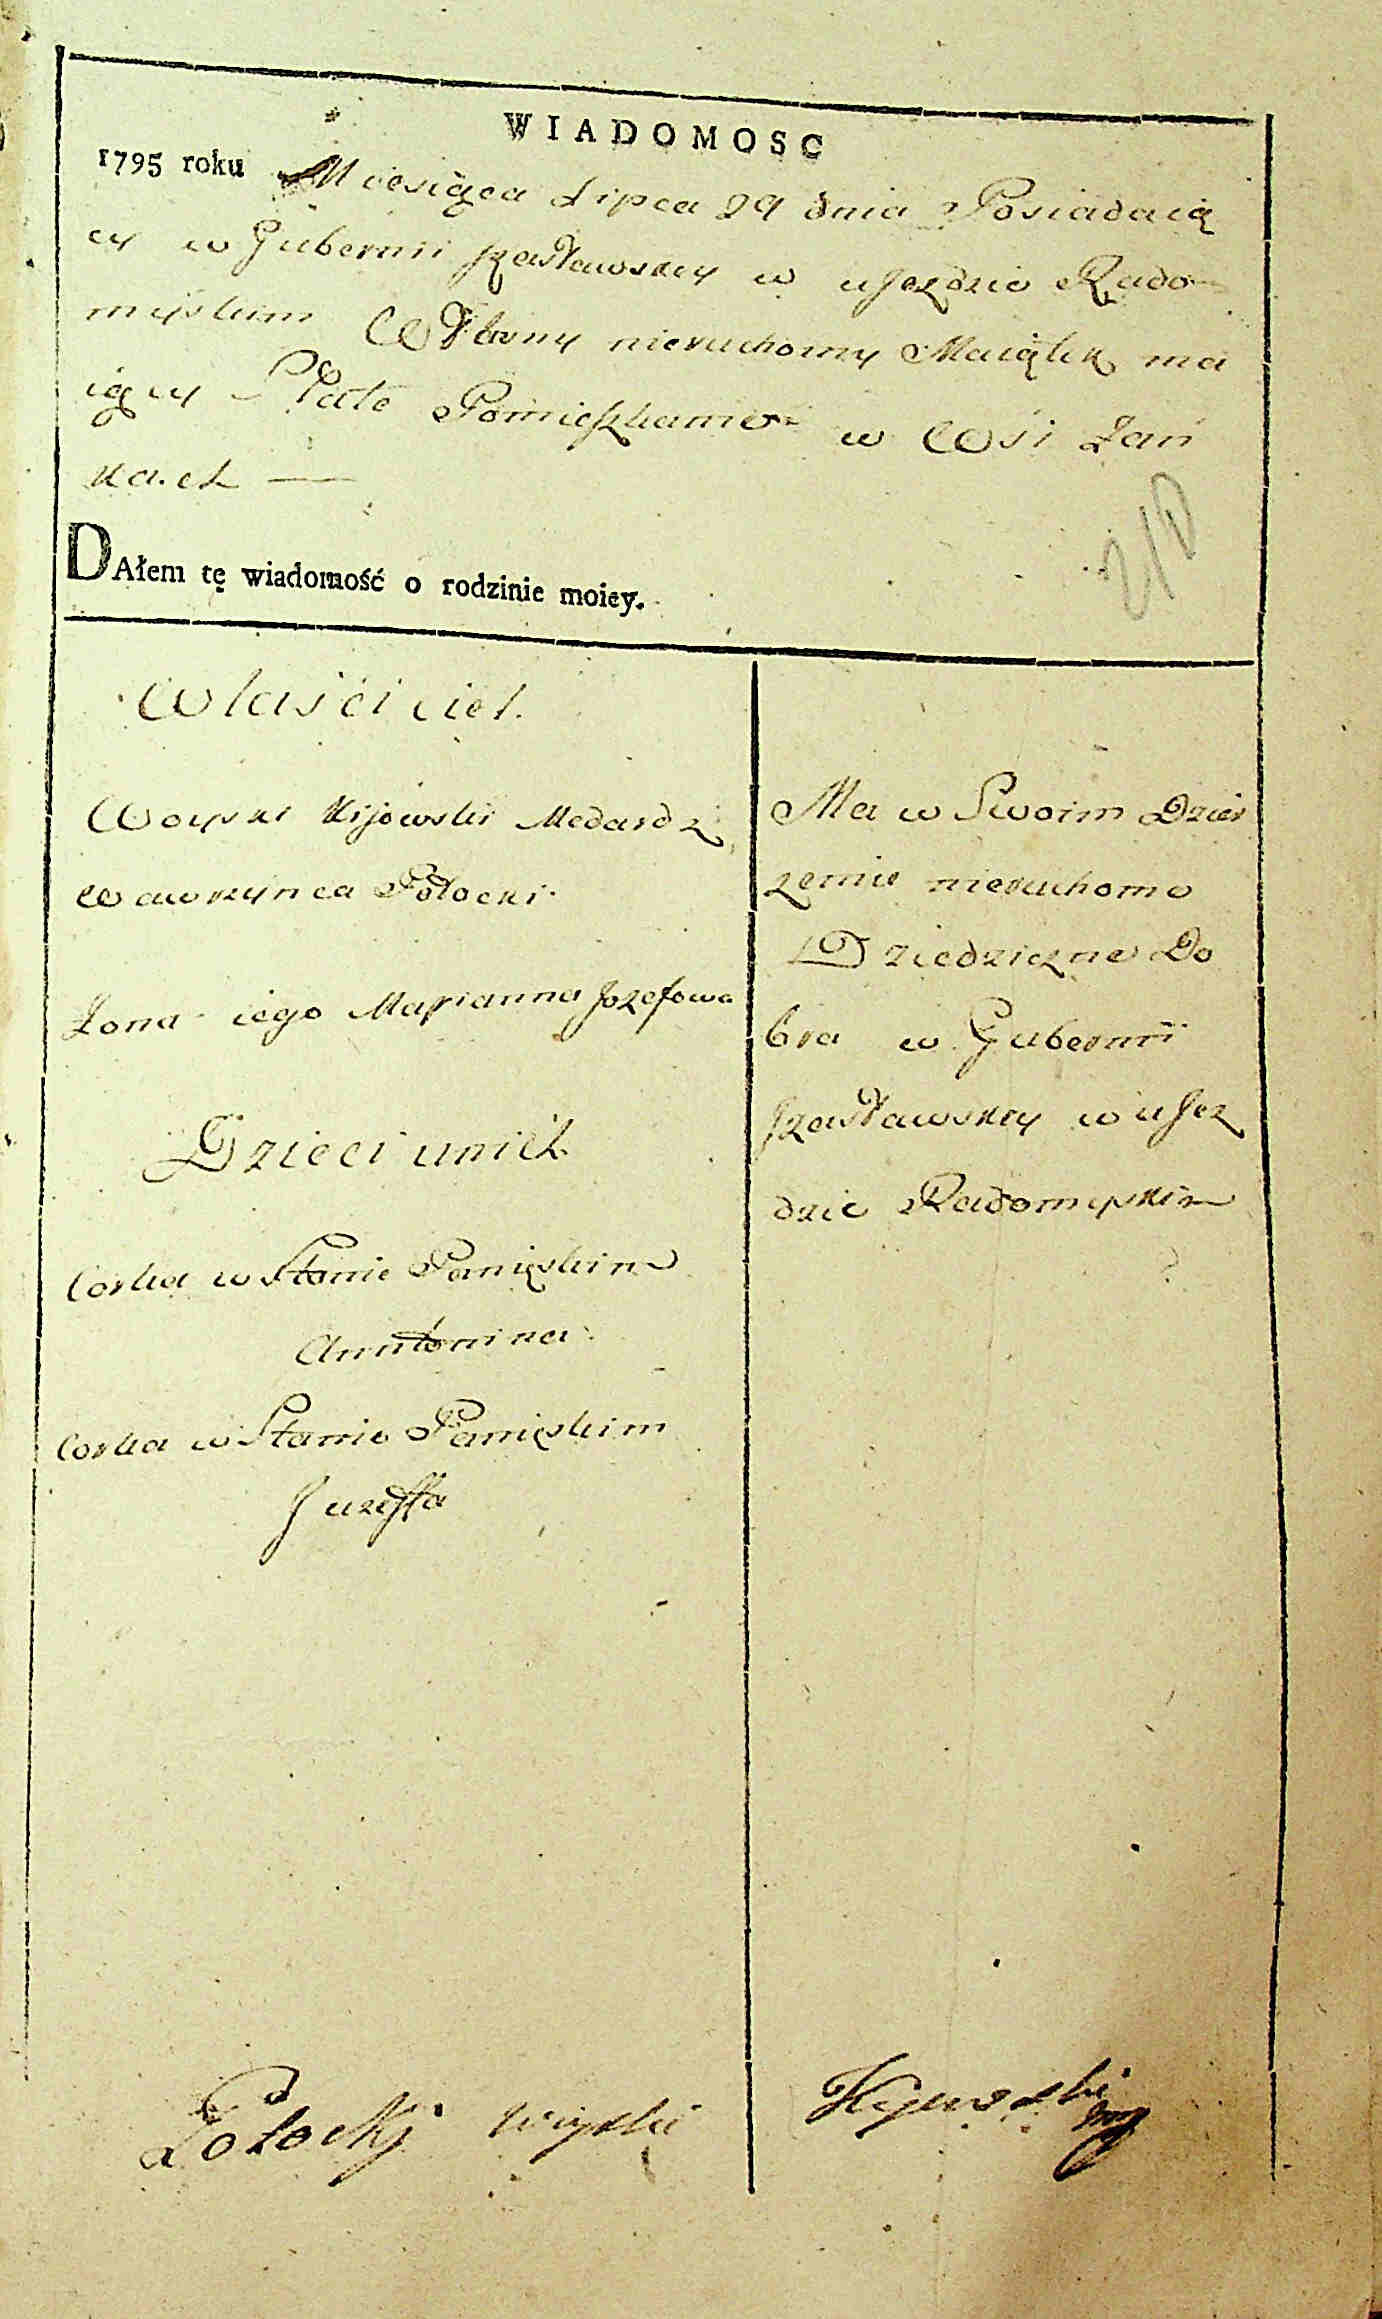 WIADOMOSC
1795 roku Miesiąca Lipca 29 dnia Posiadaią
cy w Gubernii Jzasławskey w uJezdzie Rado
myslkim Własny nieruchomy Maiątek ma
iący Stałe Pomieszkanie w Wsi Łań
kach
210
DAłem tę wiadomość o rodzinie moiey.
Właściciel.
Woyski Kijowski Medard z
Wawrzynca Potocki
Żona iego Marianna Jozefowa
Dzieci unich
Corka w Stanie Panięskim
Anntónina
Corka w Stanie Panięskim
Juzeffa
Ma w Swoim Dzier
zeniu nieruchome
Dziedziczne Do
bra w Gubernii
Jzasławskey w uJez
dzie Radomyskim
Potocky woyski
Kyiowski